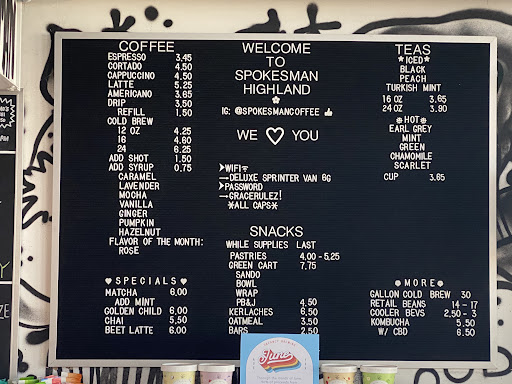 COFFEE
ESPRESSO 3.45
CORTADO 4.50
CAPPUCCINO 4.50
LATTE 5.25
AMERICANO 3.65
DRIP 3.50
REFILL 1.50
COLD BREW
12 OZ 4.25
16 4.60
24 6.25
ADD SHOT 1.50
ADD SYRUP 0.75
CARAMEL
LAVENDER
MOCHA
VANILLA
GINGER
PUMPKIN
HAZELNUT
FLAVOR OF THE MONTH:
ROSE
♥SPECIALS♥
MATCHA 6.00
ADD MINT
GOLDEN CHILD 6.00
CHAI 5.50
BEET LATTE 6.00
WELCOME
TO
SPOKESMAN
HIGHLAND
IG: @SPOKESMANCOFFEE
WE ♡ YOU
➤WIFI
→DELUXE SPRINTER VAN 6G
➤PASSWORD
→GRACERULEZ!
*ALL CAPS*
SNACKS
WHILE SUPPLIES LAST
PASTRIES 4.00-5.25
GREEN CART 7.75
SANDO
BOWL
WRAP
PB&J 4.50
KERLACHES 6.50
OATMEAL 3.50
BARS 2.50
June
TEAS
*ICED*
BLACK
PEACH
TURKISH MINT
16 OZ 3.65
24 OZ 3.90
HOT
EARL GREY
MINT
GREEN
CHAMOMILE
SCARLET
CUP 3.65
MORE
GALLON COLD BREW 30
RETAIL BEANS 14-17
COOLER BEVS 2.50-3
KOMBUCHA 5.50
W/ CBD 6.50